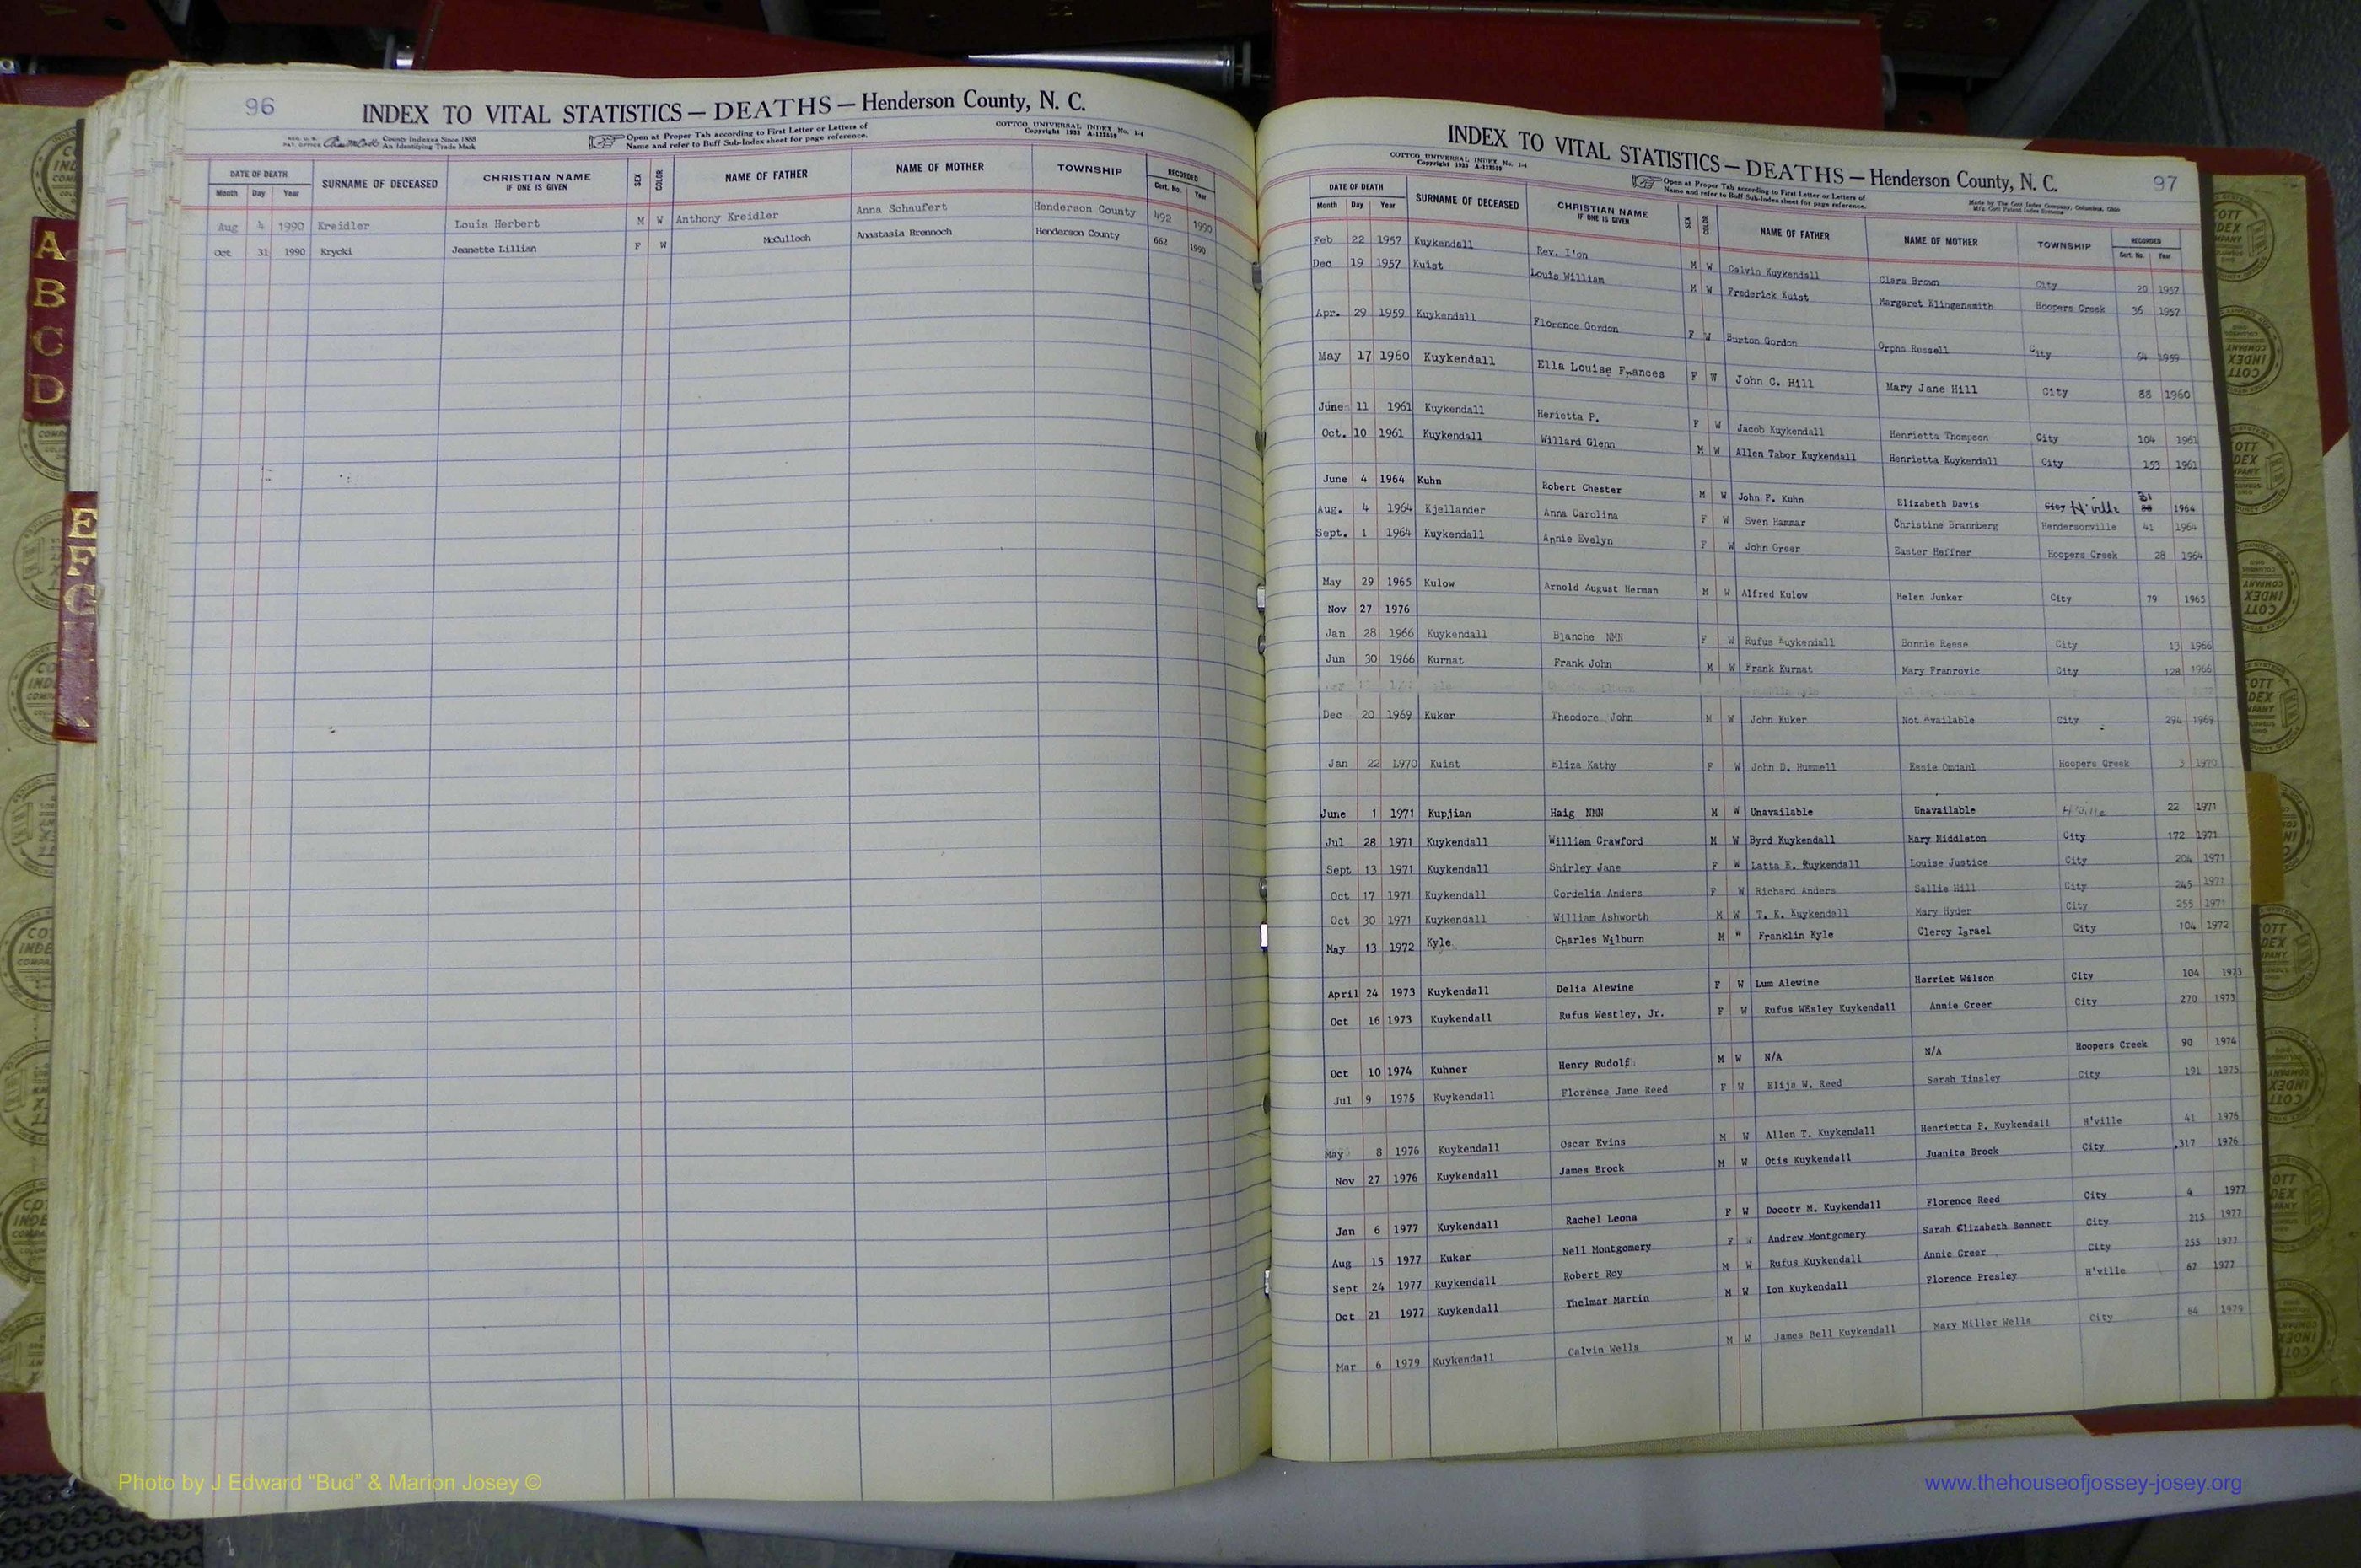 96
INDEX TO VITAL STATISTICS — DEATHS — Henderson County, N. C.
County Indexes Since 1885
An Identifying Trade Mark
Open at Proper Tab according to First Letter or Letters of
Name and refer to Buff Sub-Index sheet for page reference.
COTTCO UNIVERSAL INDEX No. 1-4
Copyright 1933 A-123559
DATE OF DEATH SURNAME OF DECEASED CHRISTIAN NAME IF ONE IS GIVEN SEX COLOR NAME OF FATHER NAME OF MOTHER TOWNSHIP RECORDED
Month Day Year Cert. No. Year
Aug 4 1990 Kreidler Louis Herbert M W Anthony Kreidler Anna Schaufert Henderson County 492 1990
Oct 31 1990 Krycki Jeannette Lillian F W McCulloch Anastasia Brennoch Henderson County 662 1990
INDEX TO VITAL STATISTICS — DEATHS — Henderson County, N. C.
97
COTTCO UNIVERSAL INDEX No. 1-4
Copyright 1933 A-123559
Open at Proper Tab according to First Letter or Letters of
Name and refer to Buff Sub-Index sheet for page reference.
Made by The Cott Index Company, Columbus, Ohio
Mfg. Cott Patent Index Systems
DATE OF DEATH SURNAME OF DECEASED CHRISTIAN NAME IF ONE IS GIVEN SEX COLOR NAME OF FATHER NAME OF MOTHER TOWNSHIP RECORDED
Month Day Year Cert. No. Year
Feb 22 1957 Kuykendall Rev. I'on M W Calvin Kuykendall Clara Brown City 20 1957
Dec 19 1957 Kuist Louis William M W Frederick Kuist Margaret Klingensmith Hoopers Creek 36 1957
Apr. 29 1959 Kuykendall Florence Gordon F W Burton Gordon Orpha Russell City 64 1959
May 17 1960 Kuykendall Ella Louise Frances F W John C. Hill Mary Jane Hill City 88 1960
June 11 1961 Kuykendall Herietta P. F W Jacob Kuykendall Henrietta Thompson City 104 1961
Oct. 10 1961 Kuykendall Willard Glenn M W Allen Tabor Kuykendall Henrietta Kuykendall City 153 1961
June 4 1964 Kuhn Robert Chester M W John F. Kuhn Elizabeth Davis City H'ville 31 1964
Aug. 4 1964 Kjellander Anna Carolina F W Sven Hammar Christine Brannberg Hendersonville 41 1964
Sept. 1 1964 Kuykendall Annie Evelyn F W John Greer Easter Heffner Hoopers Creek 28 1964
May 29 1965 Kulow Arnold August Herman M W Alfred Kulow Helen Junker City 79 1965
Nov 27 1976
Jan 28 1966 Kuykendall Blanche NMN F W Rufus Kuykendall Bonnie Reese City 13 1966
Jun 30 1966 Kurnat Frank John M W Frank Kurnat Mary Franrovic City 128 1966
Dec 20 1969 Kuker Theodore John M W John Kuker Not Available City 294 1969
Jan 22 1970 Kuist Eliza Kathy F W John D. Hummell Essie Omdahl Hoopers Creek 3 1970
June 1 1971 Kupjian Haig NMN M W Unavailable Unavailable H'ville 22 1971
Jul 28 1971 Kuykendall William Crawford M W Byrd Kuykendall Mary Middleton City 172 1971
Sept 13 1971 Kuykendall Shirley Jane F W Latta E. Kuykendall Louise Justice City 204 1971
Oct 17 1971 Kuykendall Cordelia Anders F W Richard Anders Sallie Hill City 245 1971
Oct 30 1971 Kuykendall William Ashworth M W T. K. Kuykendall Mary Hyder City 255 1971
May 13 1972 Kyle Charles Wilburn M W Franklin Kyle Clercy Israel City 104 1972
April 24 1973 Kuykendall Delia Alewine F W Lum Alewine Harriet Wilson City 104 1973
Oct 16 1973 Kuykendall Rufus Westley, Jr. F W Rufus WEsley Kuykendall Annie Greer City 270 1973
Oct 10 1974 Kuhner Henry Rudolf M W N/A N/A Hoopers Creek 90 1974
Jul 9 1975 Kuykendall Florence Jane Reed F W Elija W. Reed Sarah Tinsley City 191 1975
May 8 1976 Kuykendall Oscar Evins M W Allen T. Kuykendall Henrietta P. Kuykendall H'ville 41 1976
Nov 27 1976 Kuykendall James Brock M W Otis Kuykendall Juanita Brock City 317 1976
Jan 6 1977 Kuykendall Rachel Leona F W Docotr M. Kuykendall Florence Reed City 4 1977
Aug 15 1977 Kuker Nell Montgomery F W Andrew Montgomery Sarah Elizabeth Bennett City 215 1977
Sept 24 1977 Kuykendall Robert Roy M W Rufus Kuykendall Annie Greer City 255 1977
Oct 21 1977 Kuykendall Thelmar Martin M W Ion Kuykendall Florence Presley H'ville 67 1977
Mar 6 1979 Kuykendall Calvin Wells M W James Bell Kuykendall Mary Miller Wells City 64 1979
A
B
C
D
E
F
G
K
Photo by J Edward “Bud” & Marion Josey ©
www.thehouseofjossey-josey.org